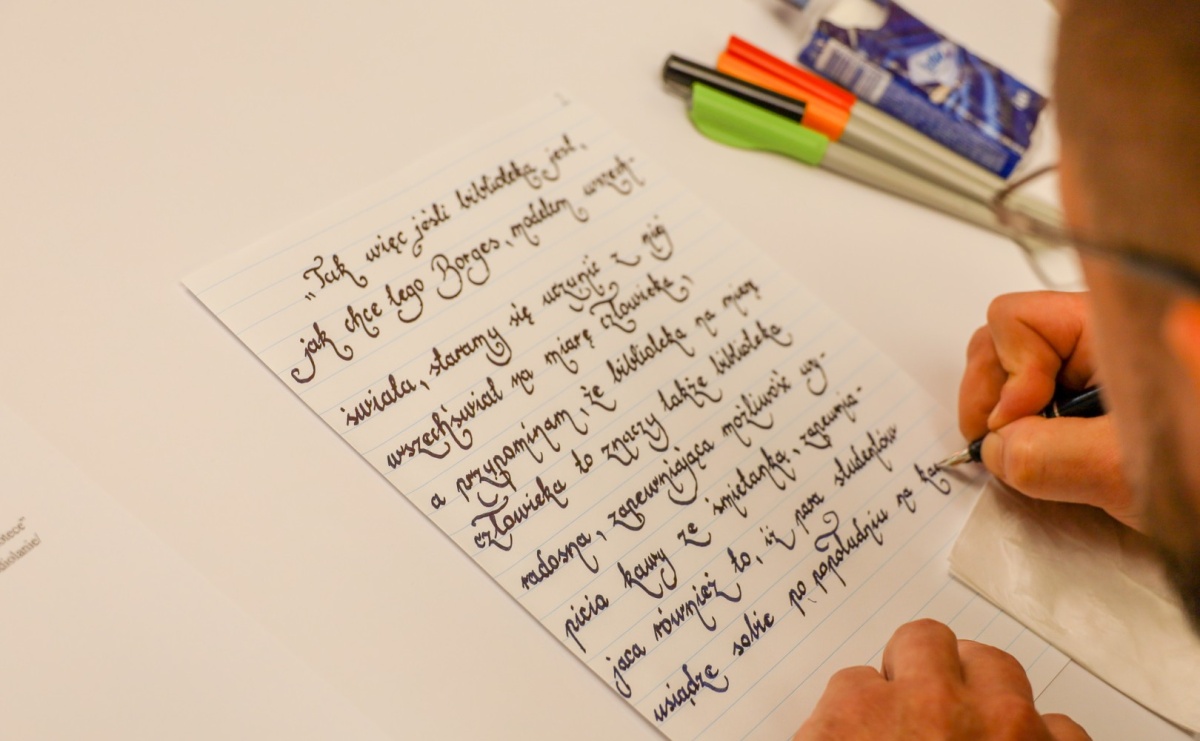 „Tak więc jeśli biblioteka jest,
jak chce tego Borges, modelem wszech-
świata, staramy się uczynić z niej
wszechświat na miarę człowieka,
a przypominam, że biblioteka na miarę
człowieka to znaczy także biblioteka
radosna, zapewniająca możliwość wy-
picia kawy ze śmietanką, zapewnia-
jąca również to, iż para studentów
usiądze sobie po popołudniu na kan
otece"
diolanie/